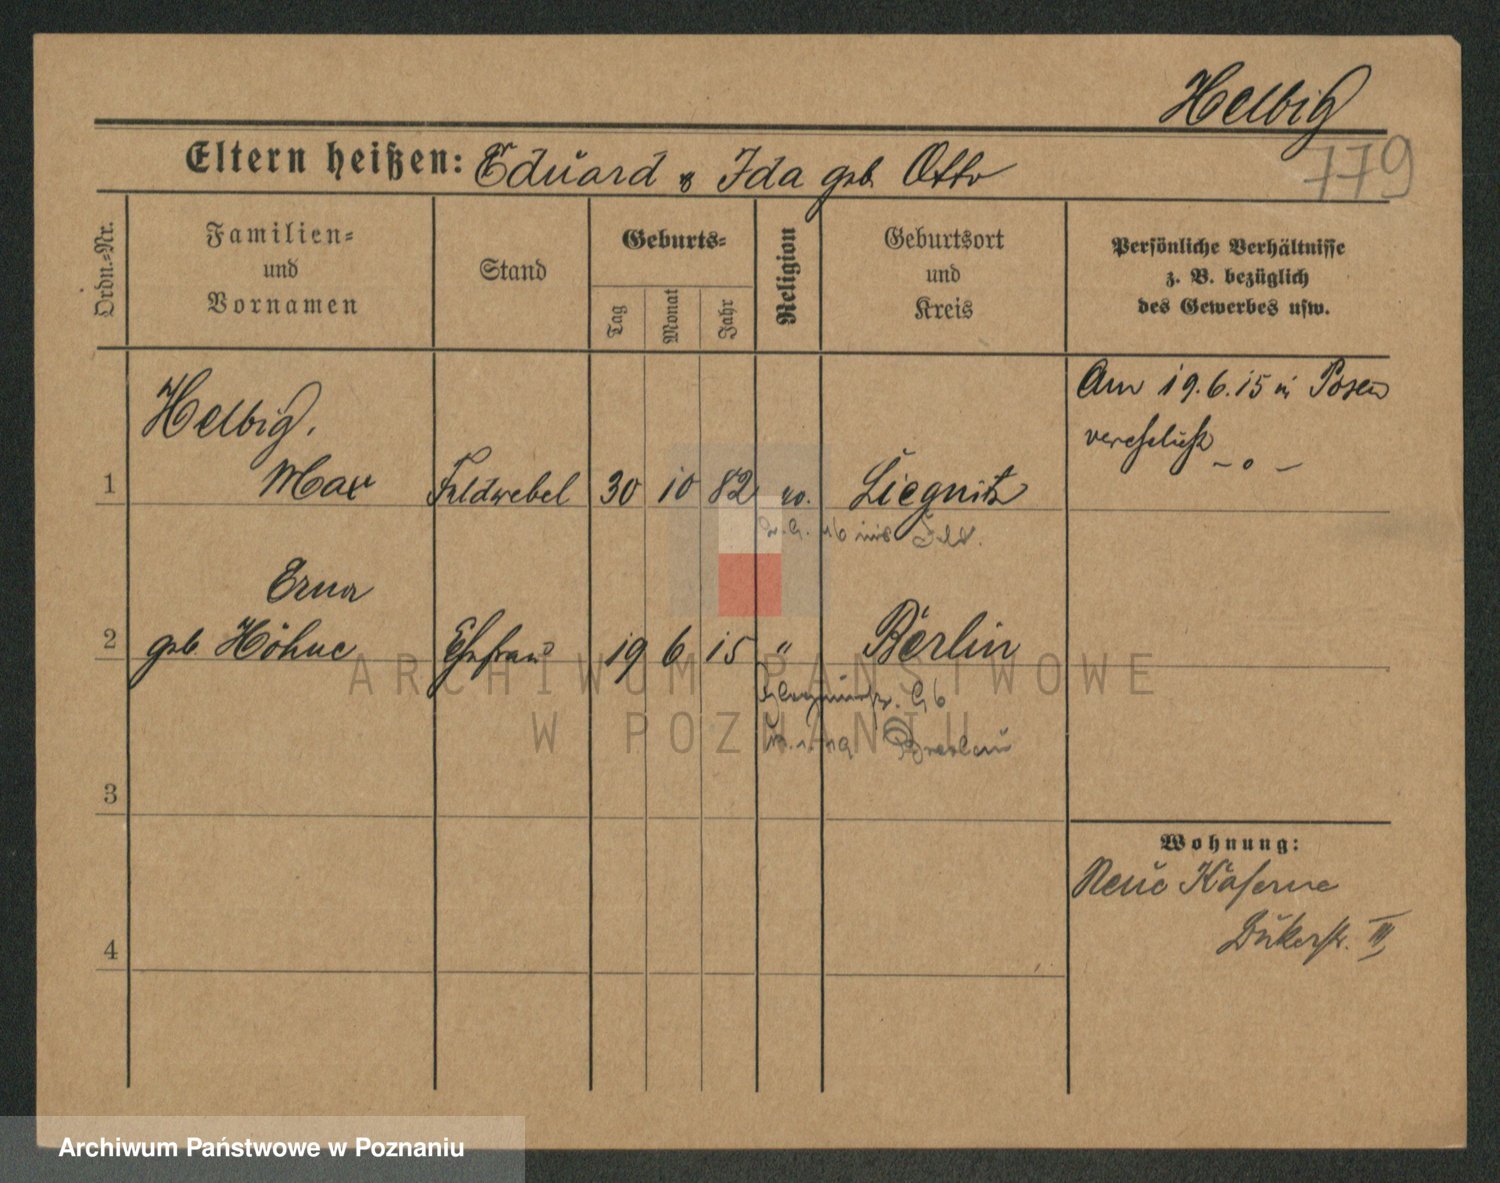 Helbig
779
Eltern heißen: Eduard & Ida geb. Otto
Ordn.=Nr.
Familien=
und
Vornamen
Stand
Geburts=
Tag
Monat
Jahr
Religion
Geburtsort
und
Kreis
Persönliche Verhältnisse
z. B. bezüglich
des Gewerbes usw.
Am 19.6.15 in Posen
verehelicht
– o –
Helbig,
1 Max Feldwebel 30 10 82 ev. Liegnitz
ins Feld.
Erna
2 geb Höhne Ehefrau 19 6 15 " Berlin
Breslau
3
4
Wohnung:
Neue Kaserne
III
ARCHIWUM PAŃSTWOWE
W POZNANIU
Archiwum Państwowe w Poznaniu